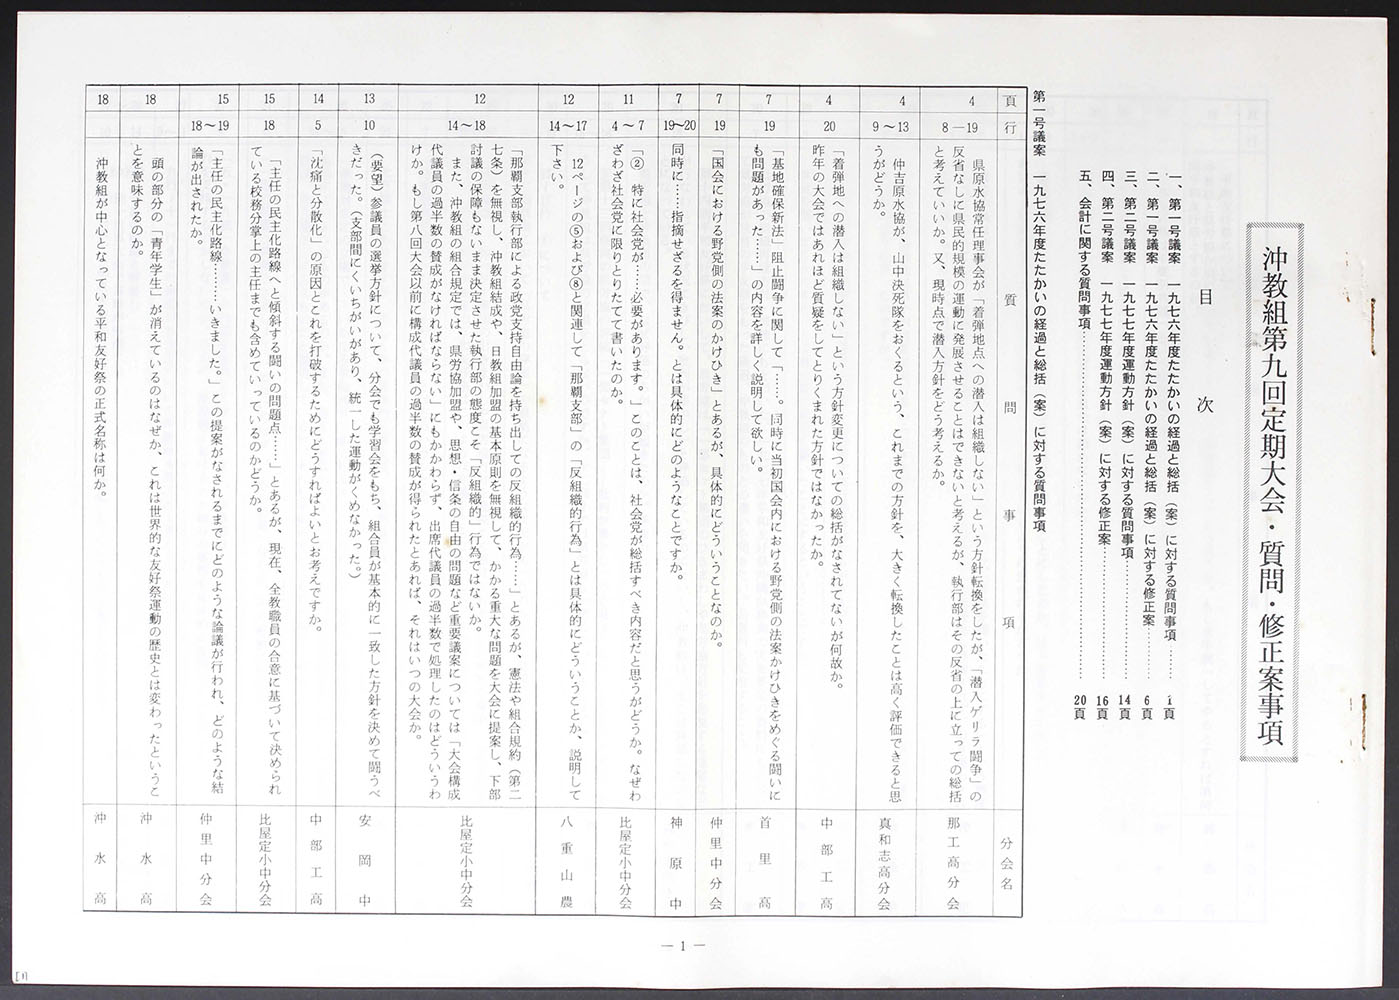 沖教組第九回定期大会・質問・修正案事項
目次
一、第一号議案 一九七六年度たたかいの経過と総括（案）に対する質問事項……………1頁
二、第一号議案 一九七六年度たたかいの経過と総括（案）に対する修正案……………6頁
三、第二号議案 一九七七年度運動方針（案）に対する質問事項……………14頁
四、第二号議案 一九七七年度運動方針（案）に対する修正案……………16頁
五、会計に関する質問事項……………20頁
第一号議案 一九七六年度たたかいの経過と総括（案）に対する質問事項
頁 行 質問事項 分会名
4 8―19
県原水協常任理事会が「着弾地点への潜入は組織しない」という方針転換をしたが、「潜入ゲリラ闘争」の
反省なしに県民的規模の運動に発展させることはできないと考えるが、執行部はその反省の上に立っての総括
と考えていいか。又、現時点で潜入方針をどう考えるか。
那工高分会
4 9～13
仲吉原水協が、山中決死隊をおくるという、これまでの方針を、大きく転換したことは高く評価できると思
うがどうか。
真和志高分会
4 20
「着弾地への潜入は組織しない」という方針変更についての総括がなされてないが何故か。
昨年の大会ではあれほど質疑をしてとりくまれた方針ではなかったか。
中部工高
7 19
「基地確保新法」阻止闘争に関して「……。同時に当初国会内における野党側の法案かけひきをめぐる闘いに
も問題があった……」の内容を詳しく説明して欲しい。
首里高
7 19
「国会における野党側の法案のかけひき」とあるが、具体的にどういうことなのか。
仲里中分会
7 19～20
同時に……指摘せざるを得ません。とは具体的にどのようなことですか。
神原中
11 4～7
「② 特に社会党が……必要があります。」このことは、社会党が総括すべき内容だと思うがどうか。なぜわ
ざわざ社会党に限りとりたてて書いたのか。
比屋定小中分会
12 14～17
12ページの⑤および⑧と関連して「那覇支部」の「反組織的行為」とは具体的にどういうことか、説明して
下さい。
八重山農
12 14～18
「那覇支部執行部による政党支持自由論を持ち出しての反組織的行為……」とあるが、憲法や組合規約（第二
七条）を無視し、沖教組結成や、日教組加盟の基本原則を無視して、かかる重大な問題を大会に提案し、下部
討議の保障もないまま決定させた執行部の態度こそ「反組織的」行為ではないか。
また、沖教組の組合規定では、県労協加盟や、思想・信条の自由の問題など重要議案については「大会構成
代議員の過半数の賛成がなければならない」にもかかわらず、出席代議員の過半数で処理したのはどういうわ
けか。もし第八回大会以前に構成代議員の過半数の賛成が得られたとあれば、それはいつの大会か。
比屋定小中分会
13 10
（要望）参議員の選挙方針について、分会でも学習会をもち、組合員が基本的に一致した方針を決めて闘うべ
きだった。（支部間にくいちがいがあり、統一した運動がくめなかった。）
安岡中
14 5
「沈痛と分散化」の原因とこれを打破するためにどうすればよいとお考えですか。
中部工高
15 18
「主任の民主化路線へと傾斜する闘いの問題点……」とあるが、現在、全教職員の合意に基づいて決められ
ている校務分掌上の主任までも含めていっているのかどうか。
比屋定小中分会
15 18～19
「主任の民主化路線………いきました。」この提案がなされるまでにどのような論議が行われ、どのような結
論が出されたか。
仲里中分会
18
頭の部分の「青年学生」が消えているのはなぜか、これは世界的な友好祭運動の歴史とは変わったというこ
とを意味するのか。
沖水高
18
沖教組が中心となっている平和友好祭の正式名称は何か。
沖水高
― 1 ―
[1]